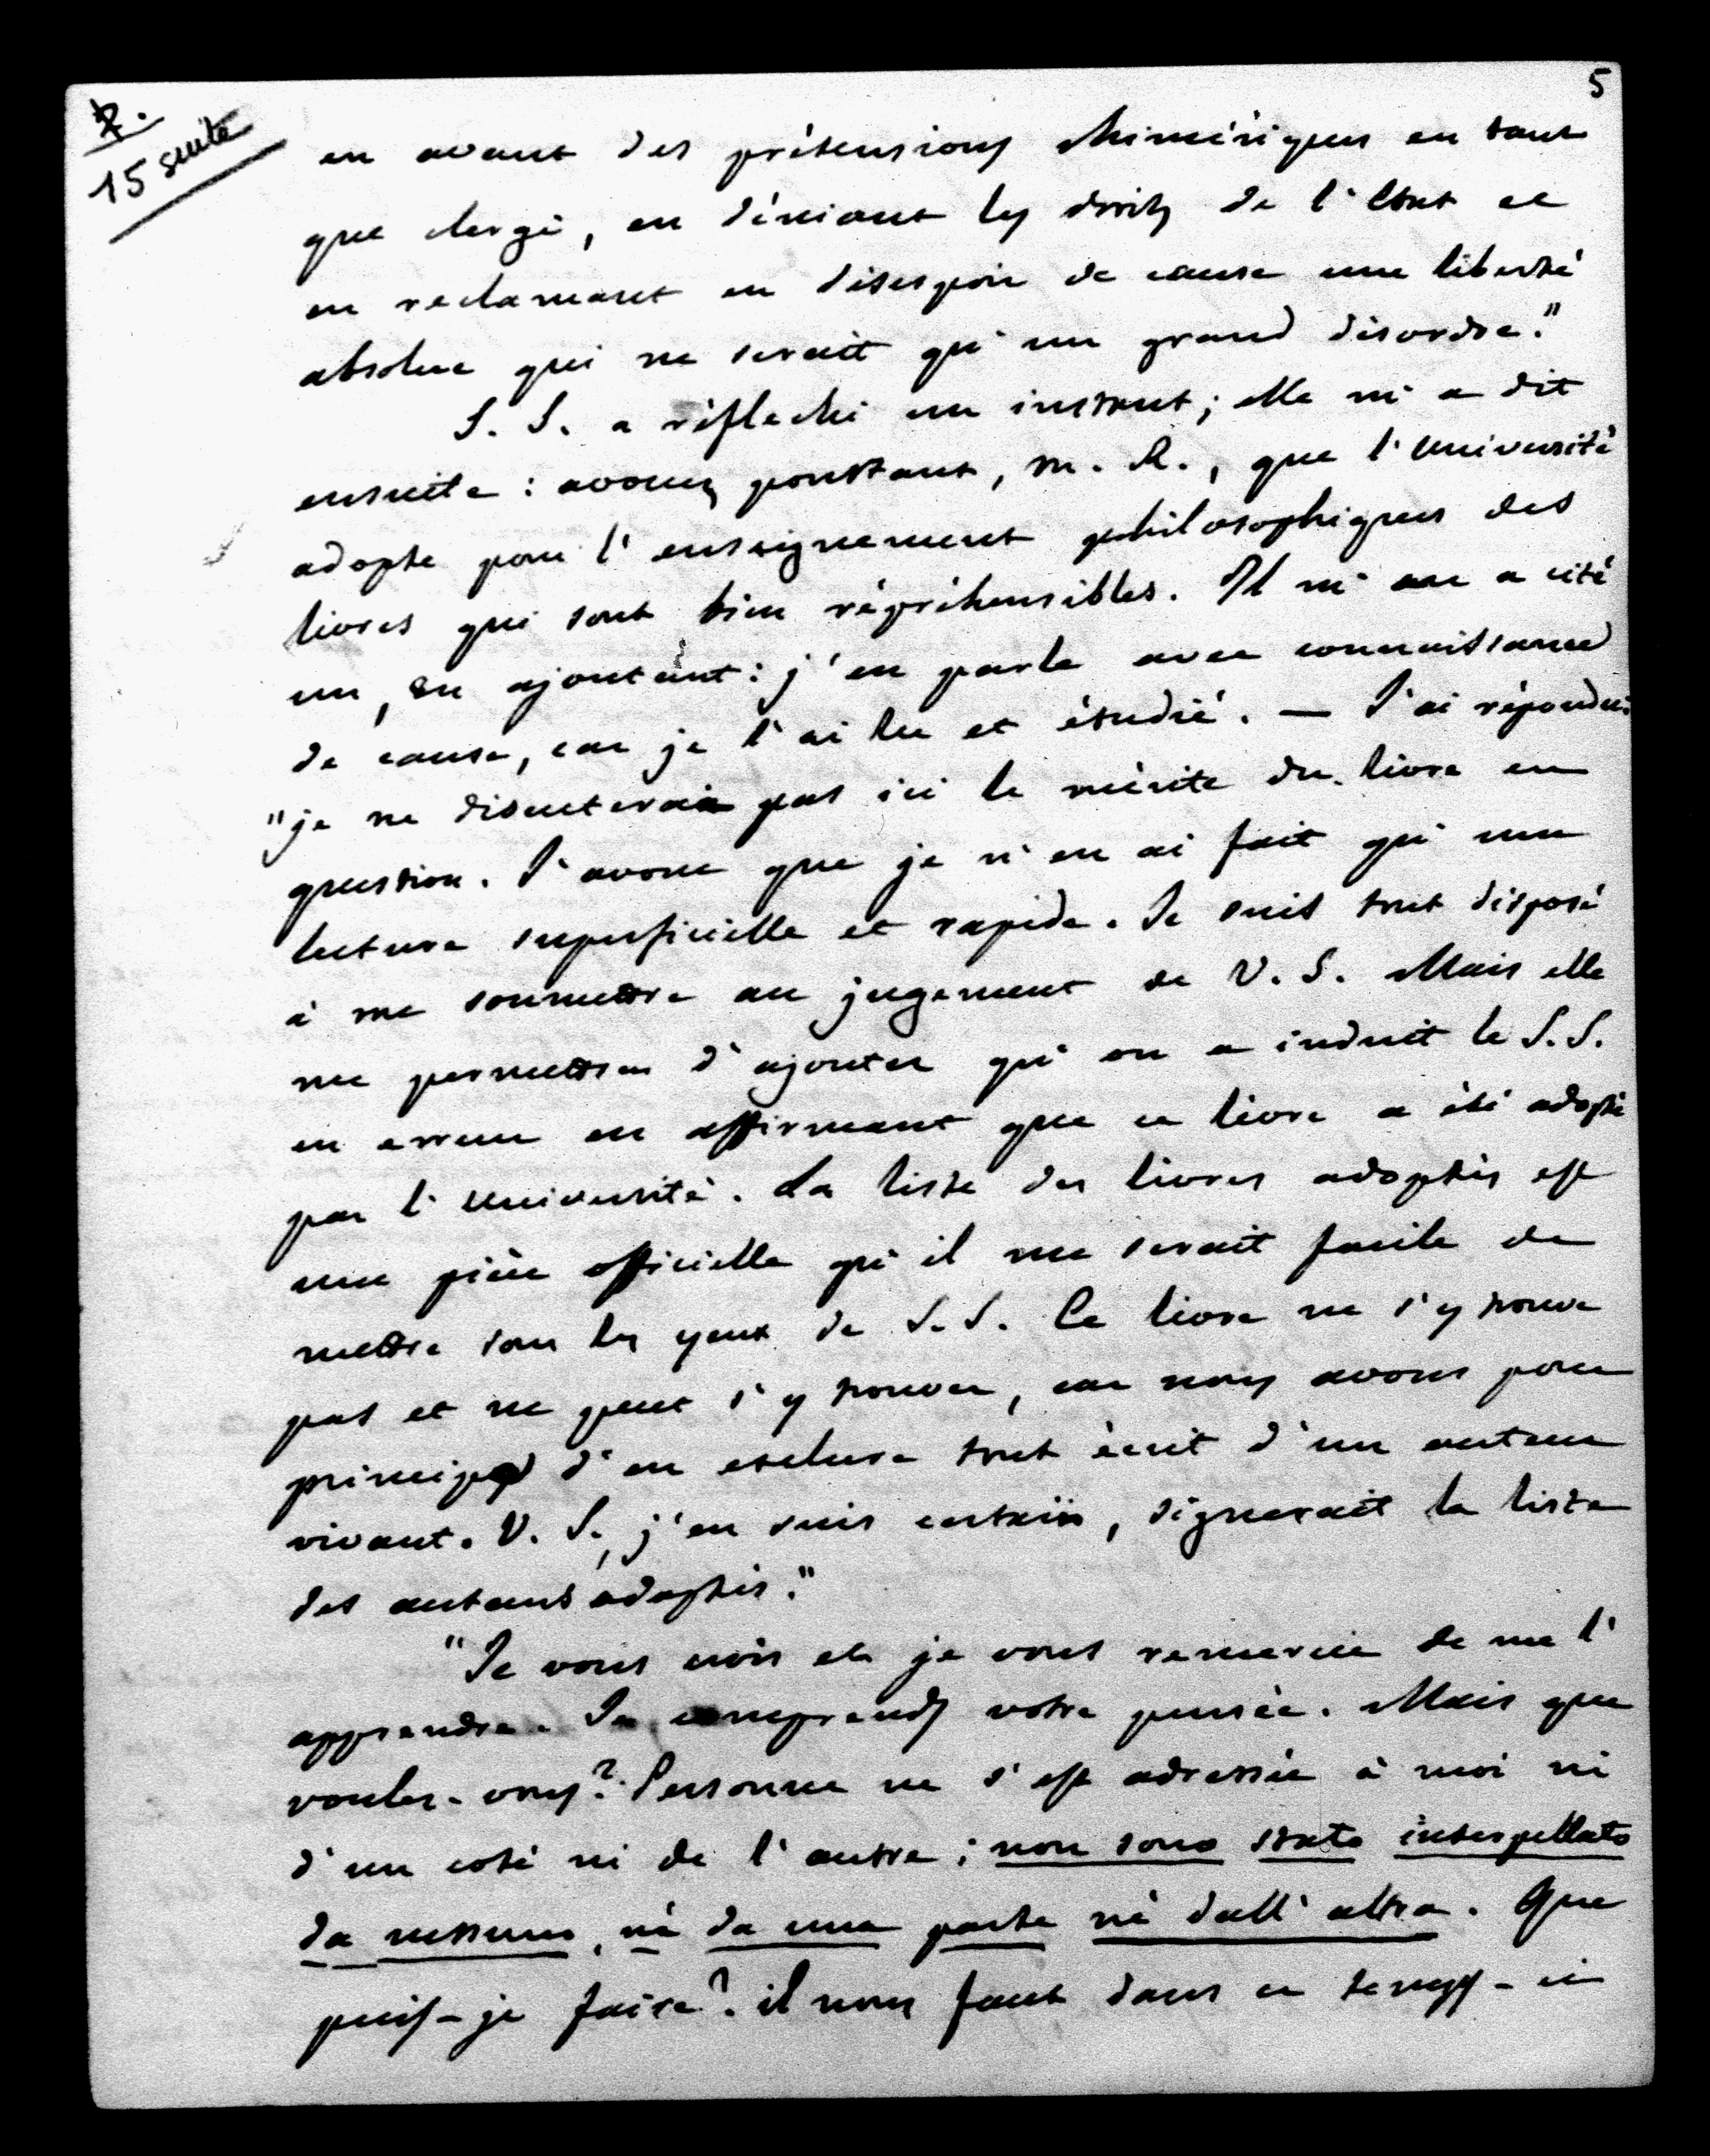 5
R.
15 suite
en avant des prétensions chimériques en tant
que clergé, en déniant les droits de l'Etat et
en reclamant en désespoir de cause une liberté
absolue qui ne serait qu'un grand désordre."
S. S. a réfléchi un instant; elle m'a dit
ensuite : avouez pourtant, M. R., que l'Université
adopte pour l'enseignement philosophiques des
livres qui sont bien répréhensibles. Il m'en a cité
un, en ajoutant : j'en parle avec connaissance
de cause, car je l'ai lu et étudié. — J'ai répondu:
"je ne discuterai pas ici le mérite du livre en
question. J'avoue que je n'en ai fait qu'une
lecture superficielle et rapide. Je suis tout disposé
à me soumettre au jugement de V. S. Mais elle
me permettra d'ajouter qu'on a induit le S.S.
en erreur en affirmant que ce livre a été adopté
par l'Université. La liste des livres adoptés est
une pièce officielle qu'il me serait facile de
mettre sous les yeux de S.S. Ce livre ne s'y trouve
pas et ne peut s'y trouver, car nous avons pour
principe d'en exclure tout écrit d'un auteur
vivant. V. S., j'en suis certain, signerait la liste
des auteurs adoptés."
"Je vous crois et je vous remercie de me l'
apprendre. Je comprends votre pensée. Mais que
voulez-vous? Personne ne s'est adressée à moi ni
d'un coté ni de l'autre ; non sono stato interpellato
da nessuno, nè da una parte nè dall'altra. Que
puis-je faire? il nous faut dans ce temps-ci